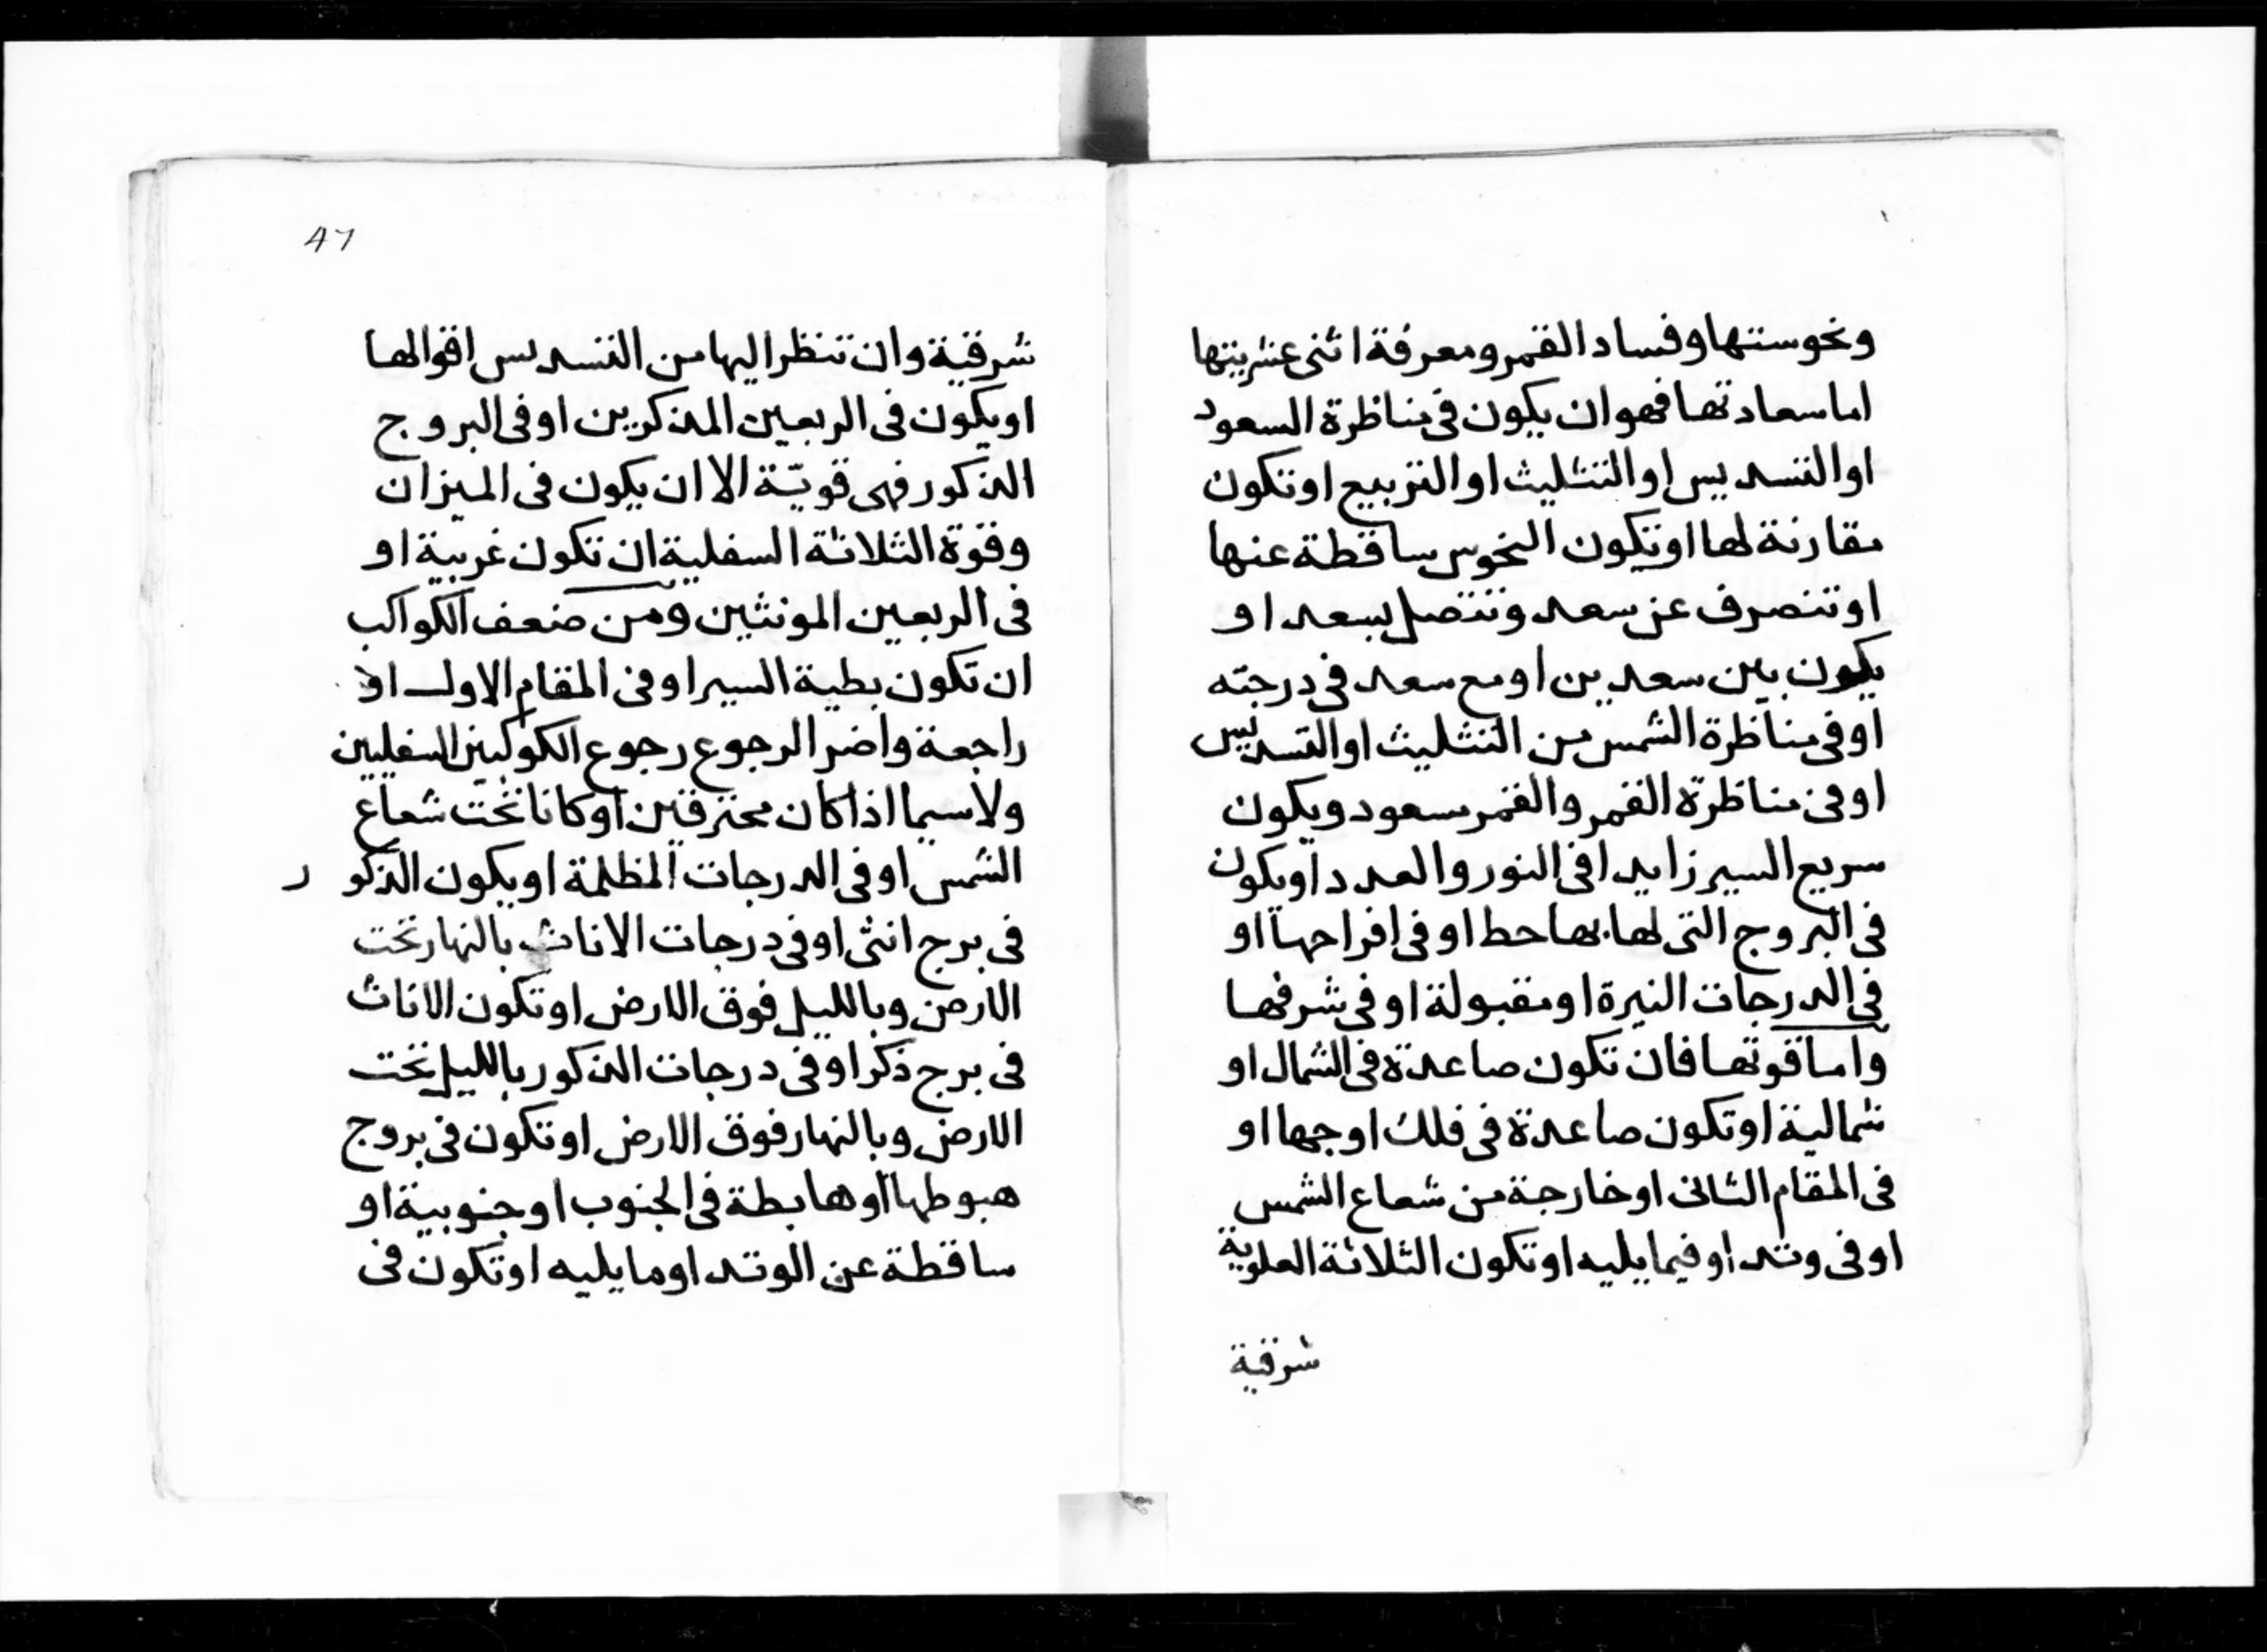 ونحوستها وفساد القمر ومعرفة اثنى عشريتها
اما سعادتها فهو ان يكون فى مناظرة السعود
او التسديس او التثليث او التربيع او تكون
مقارنة لها او تكون النحوس ساقطة عنها
او تنصرف عن سعد وتتصل بسعد او
يكون بين سعدين او مع سعد فى درجته
او فى مناظرة الشمس من التثليث او التسديس
او فى مناظرة القمر والقمر مسعود ويكون
سريع السير زايدا فى النور والعدد او يكون
فى البروج التى لها بها حط او فى افراحها او
فى الدرجات النيرة او مقبولة او فى شرفها
واما قوتها فان تكون صاعدة فى الشمال او
شمالية او تكون صاعدة فى فلك اوجها او
فى المقام الثانى او خارجة من شعاع الشمس
او فى وتد او فيما يليه او تكون الثلاثة العلوية
شرقية
٨٦
شرقية وان تنظر اليها من التسديس اقوالها
او يكون فى الربعين المذكرين او فى البروج
الذكور فهى قويّة الا ان يكون فى الميزان
وقوة الثلاثة السفلية ان تكون غربية او
فى الربعين المونثين ومن ضعف الكواكب
ان تكون بطية السير او فى المقام الاول او
راجعة واضر الرجوع رجوع الكوكبين السفليين
ولا سيما اذا كان محترقين او كانا تحت شعاع
الشمس او فى الدرجات المظلمة او يكون الذكور
فى برج انثى او فى درجات الاناث بالنهار تحت
الارض وبالليل فوق الارض او تكون الاناث
فى برج ذكر او فى درجات الذكور بالليل تحت
الارض وبالنهار فوق الارض او تكون فى بروج
هبوطها او هابطة فى الجنوب او جنوبية او
ساقطة عن الوتد او ما يليه او تكون فى